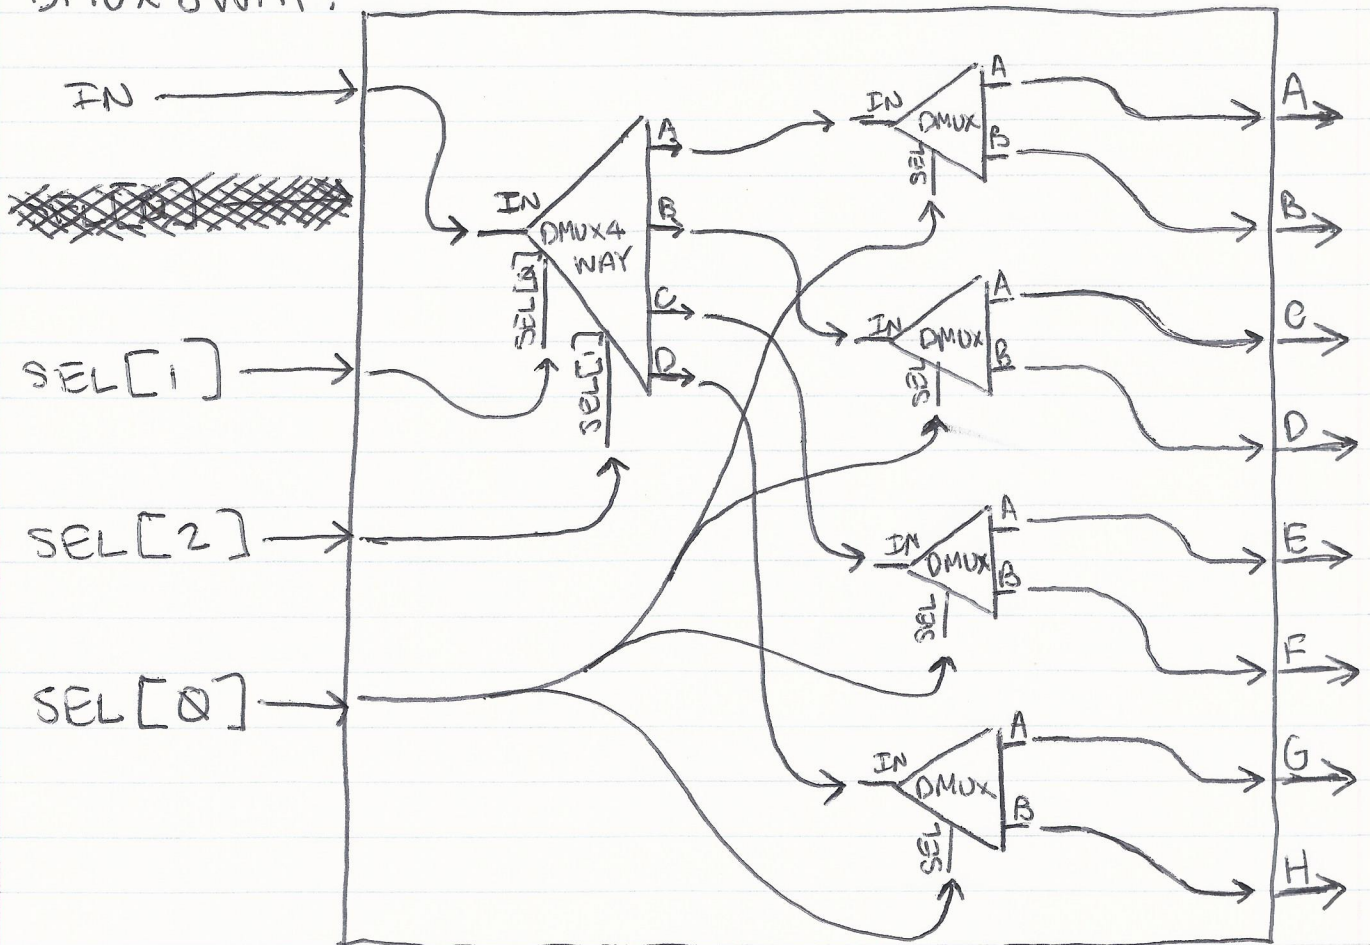 DMUX8WAY:
IN
SEL[1]
SEL[2]
SEL[0]
IN
DMUX4
WAY
SEL[0]
SEL[1]
A
B
C
D
IN
DMUX
SEL
A
B
IN
DMUX
SEL
A
B
IN
DMUX
SEL
A
B
IN
DMUX
SEL
A
B
A
B
C
D
E
F
G
H